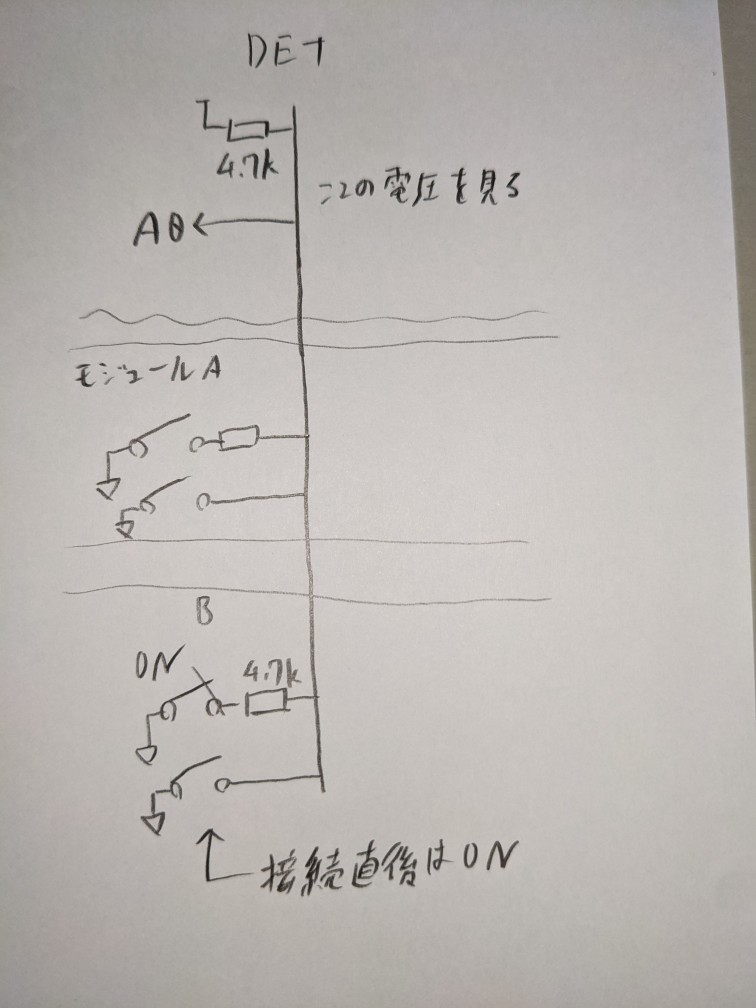 DET
4.7k
ここの電圧を見る
A0
モジュールA
B
ON
4.7k
接続直後はON